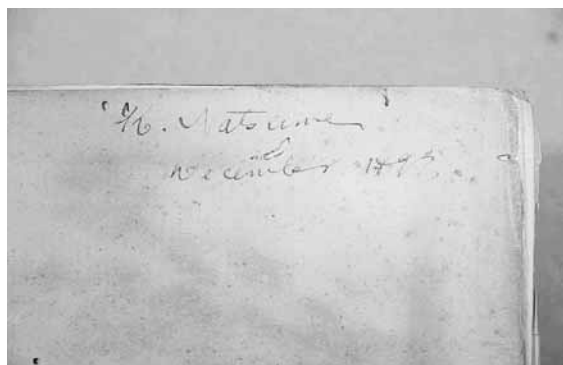 K. Natsume
December 1895